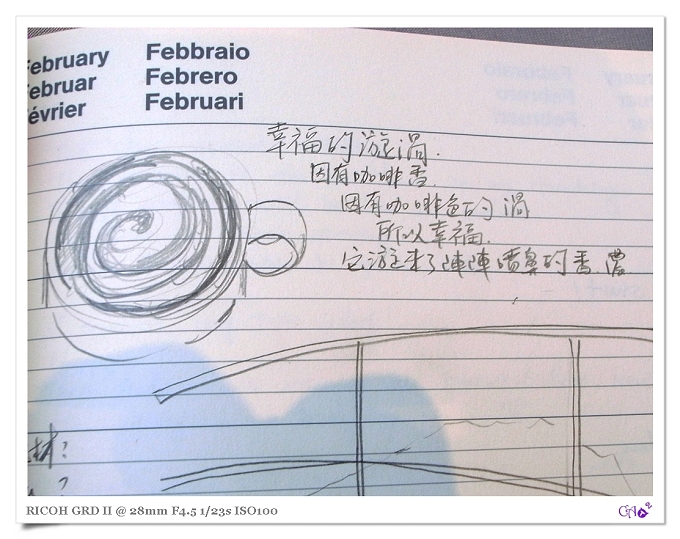 February
Februar
Février
Febbraio
Febrero
Februari
幸福的漩渦.
因有咖啡香
因有咖啡色的渦
所以幸福.
它漩來了陣陣噴鼻的香.濃
材?
?
RICOH GRD II @ 28mm F4.5 1/23s ISO100